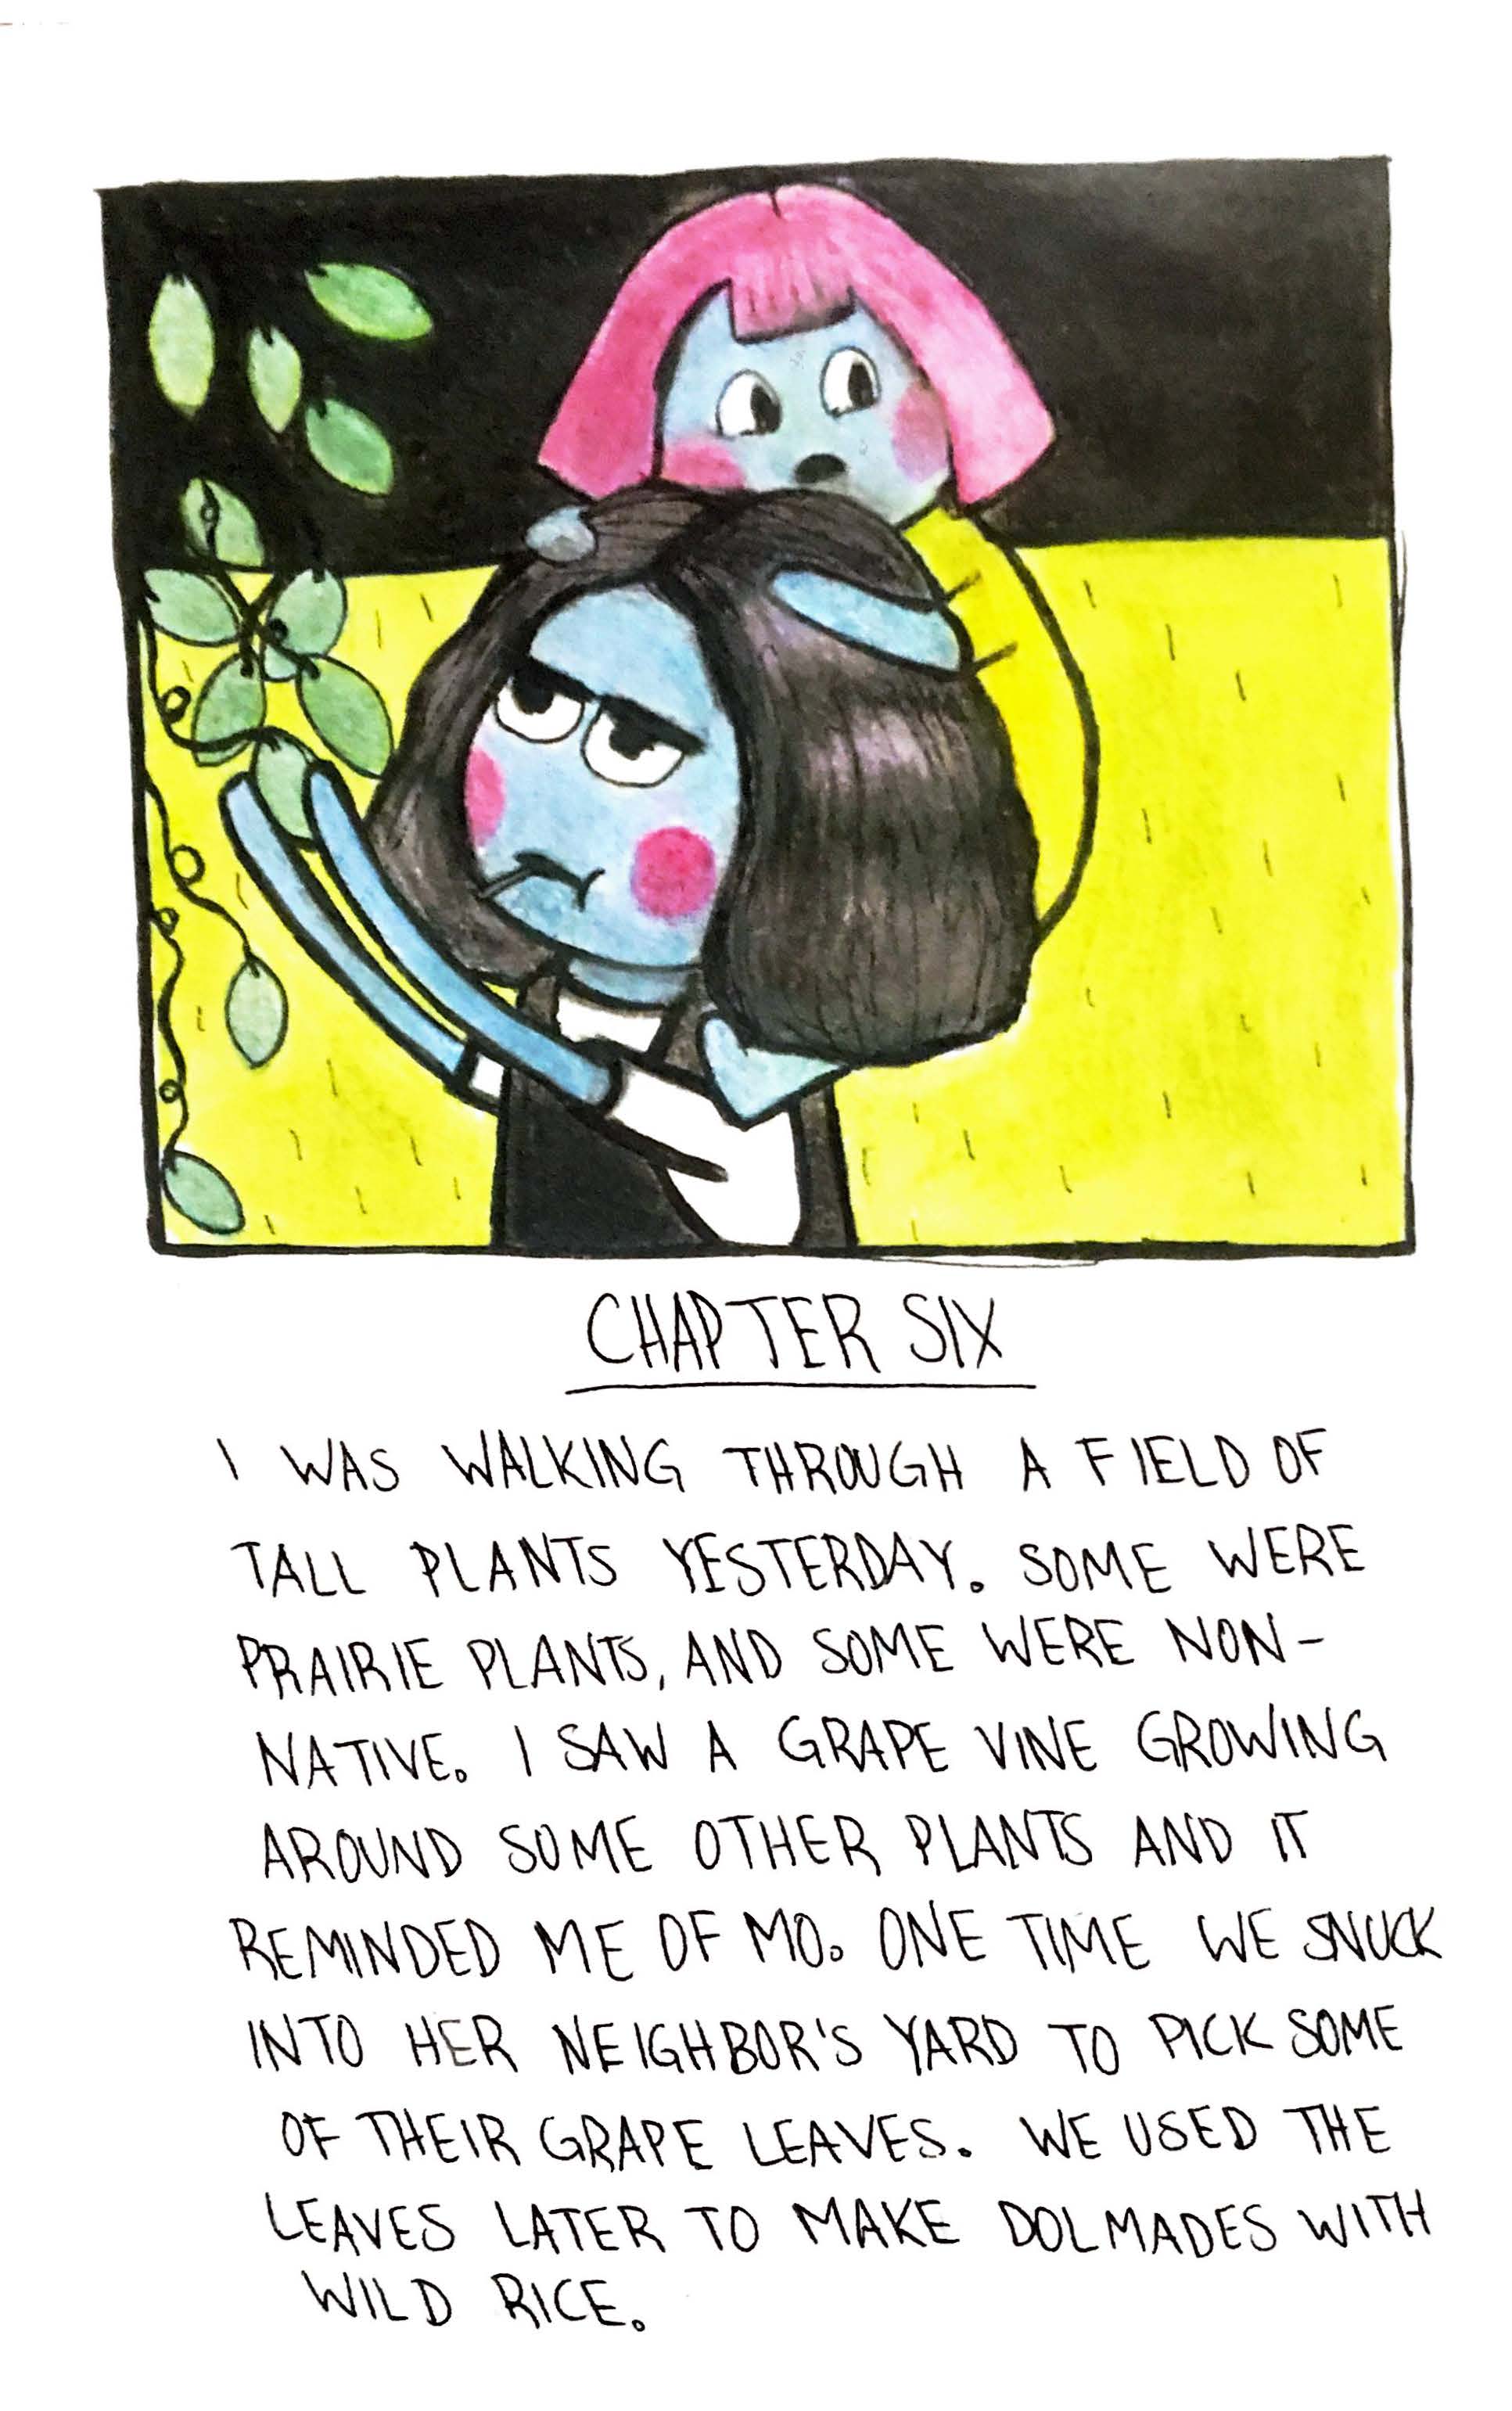 CHAPTER SIX
I WAS WALKING THROUGH A FIELD OF
TALL PLANTS YESTERDAY. SOME WERE
PRAIRIE PLANTS, AND SOME WERE NON-
NATIVE. I SAW A GRAPE VINE GROWING
AROUND SOME OTHER PLANTS AND IT
REMINDED ME OF MO. ONE TIME WE SNUCK
INTO HER NEIGHBOR'S YARD TO PICK SOME
OF THEIR GRAPE LEAVES. WE USED THE
LEAVES LATER TO MAKE DOLMADES WITH
WILD RICE.